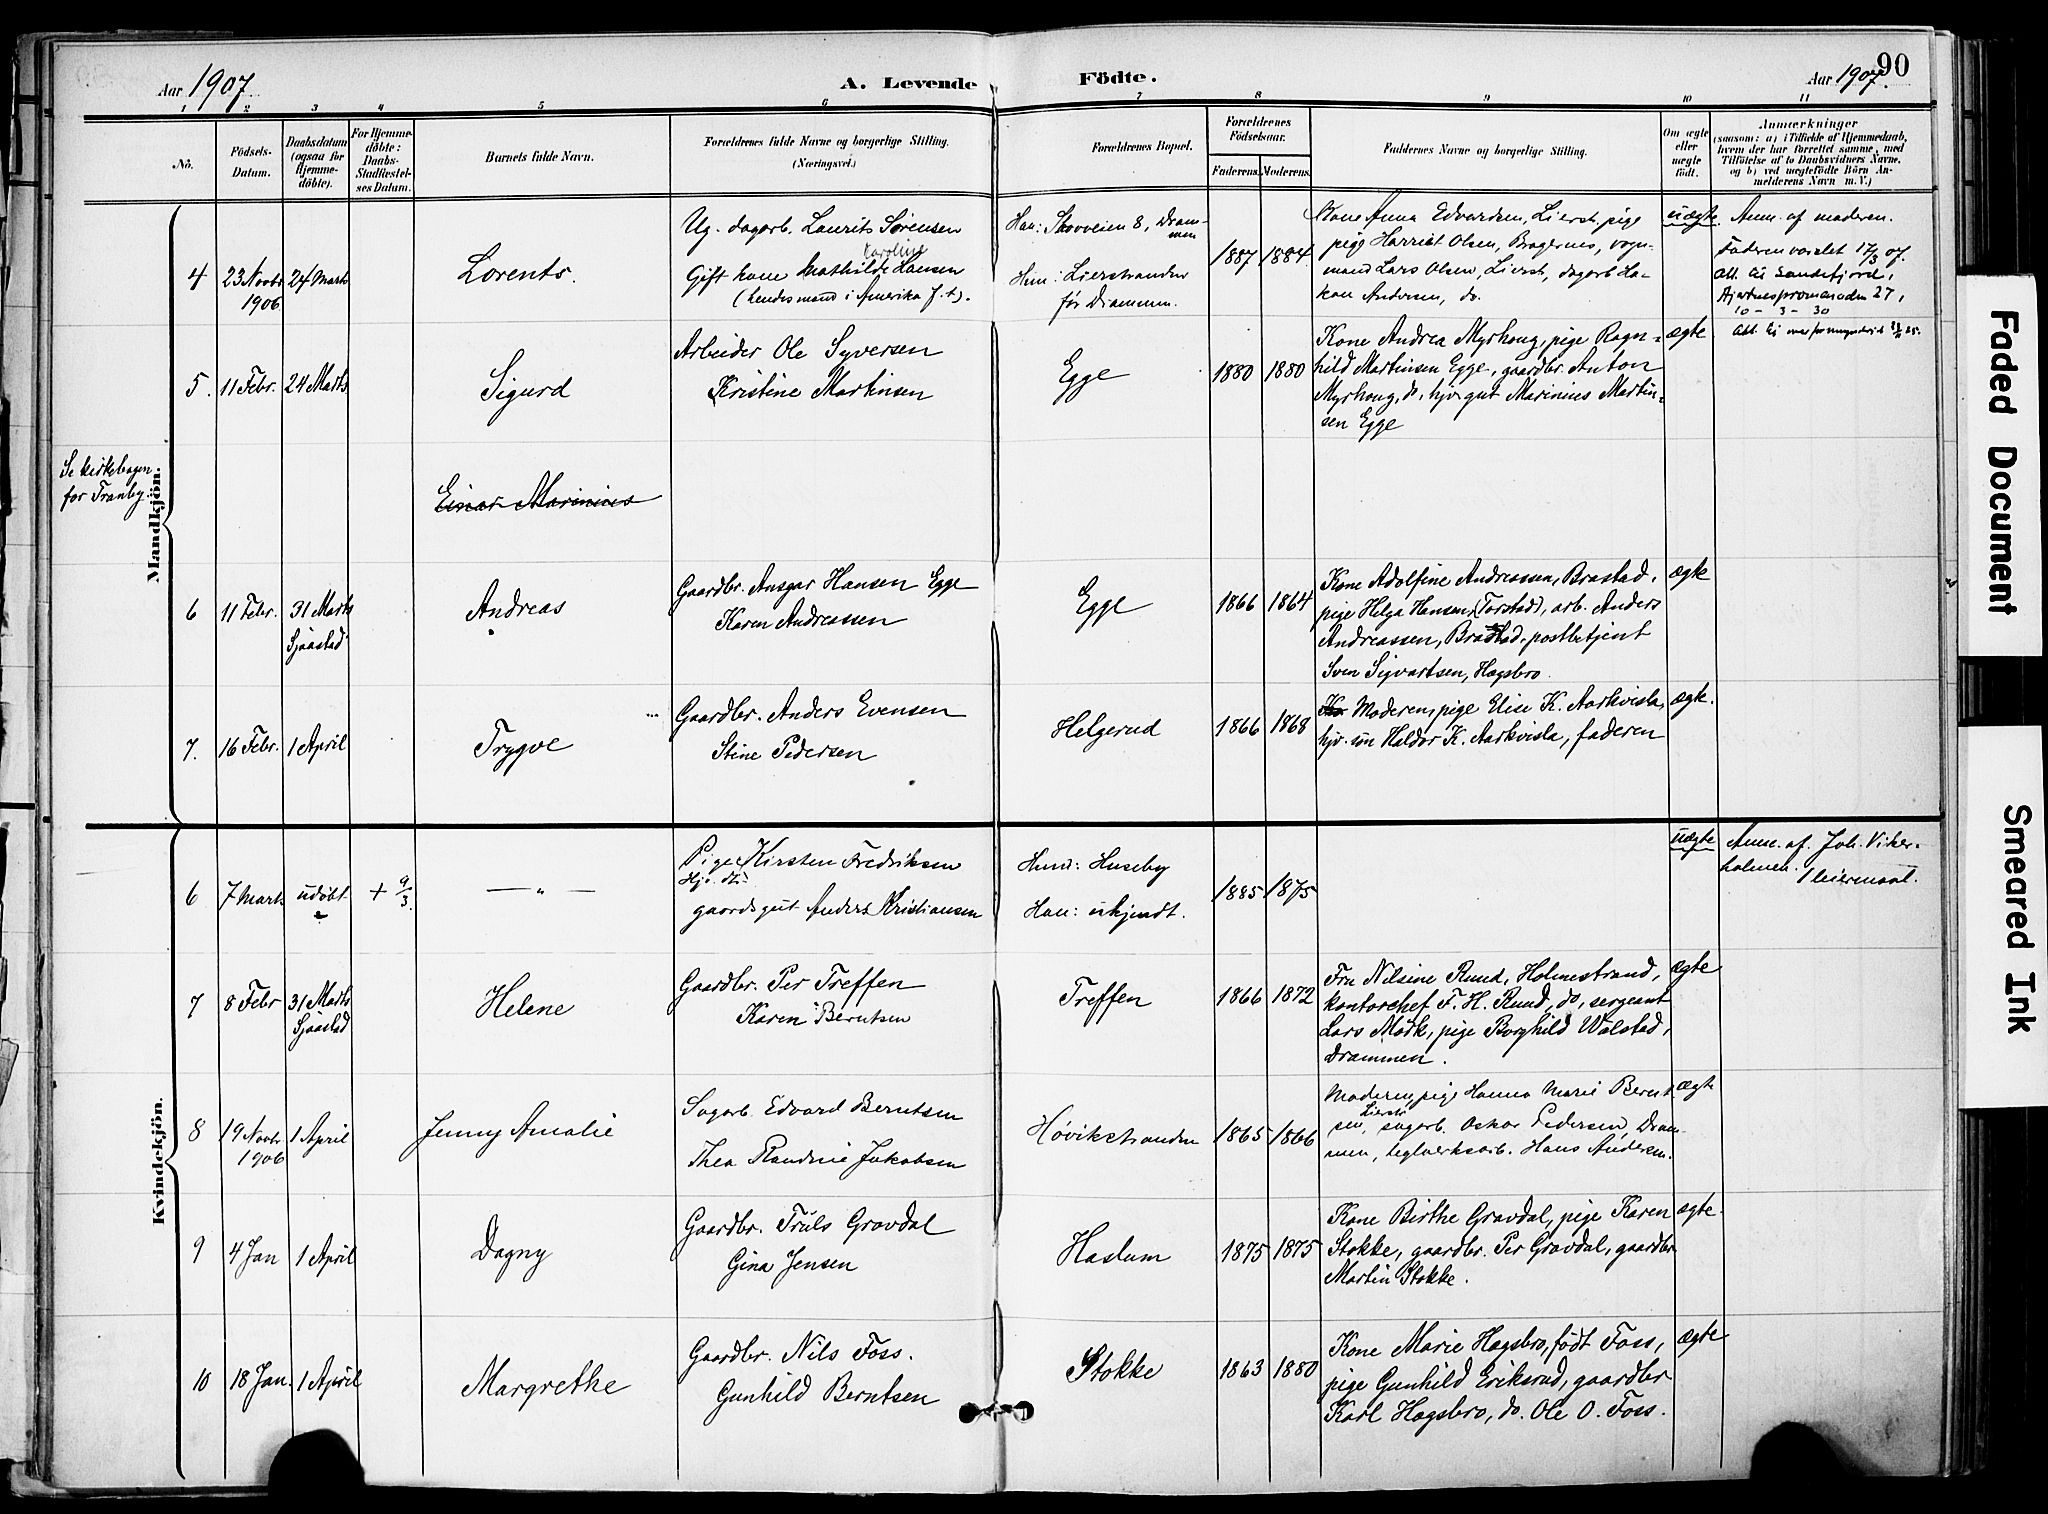 Aar 1907.
A. Levende Födte.
Aar 1907.
90
1 2 3 4 5 6 7 8 9 10 11
No.
Födsels-
Datum.
Daabsdatum
(ogsaa for
Hjemme-
döbte).
For Hjemme-
döbte:
Daabs-
Stadfæstel-
ses Datum.
Barnets fulde Navn.
Forældrenes fulde Navne og borgerlige Stilling.
(Næringsvei.)
Forældrenes Bopæl.
Forældrenes
Födselsaar.
Faderens. Moderens.
Faddernes Navne og borgerlige Stilling.
Om ægte
eller
uægte
födt.
Anmærkninger
(saasom: a) i Tilfælde af Hjemmedaab,
hvem der har forrettet samme, med
Tilföielse af to Daabsvidners Navne,
og b) ved uegtefödte Börn An-
melderens Navn m. V.)
Mandkjön.
4
23 Novbr
1906
24 Marts
Lorents.
Ug. dagarb. Laurits Sörensen
Karoline
Gift kone Mathilde Hansen
(hendes mand i Amerika f. t.).
Han: Skovveien 8, Dram-
men
Hun: Lierstranden
för Drammen.
1887 1884
Kone Anna Edvardsen, Lierst, pige
pige Harriet Olsen, Bragernes, vogn-
mand Lars Olsen, Lierst, dagarb Ha-
kon Andersen, do.
uægte
Anm. af moderen.
Faderen varslet 17/3 07.
Att. til Sandefjord,
27,
10 - 3 - 30
5.
11 Febr.
24 Marts
Sigurd
Arbeider Ole Syversen
Kristine Martinsen
Egge
1880 1880
Kone Andrea Myrhaug, pige Ragn-
hild Martinsen Egge, gaardbr. Anton
Myrhaug, do, hjv. gut Marinius Martin-
sen Egge
ægte
Se kirkebogen
for Tranby.
Einar Marinius
6
11 Febr.
31 Marts
Sjaastad
Andreas
Gaardbr. Ansgar Hansen Egge
Karen Andreassen
Egge
1866 1864
Kone Adolfine Andreassen, Brastad,
pige Helga Hansen (Torstad), arb. Anders
Andreassen, Brastad, postbetjent
Sven Sigvartsen, Hagsbro.
ægte
7.
16 Febr.
1 April
Trygve
Gaardbr. Anders Evensen
Stine Pedersen
Helgerud
1866 1868
Moderen, pige Elise K. Aarkvisla,
hjv. søn Haldor K. Aarkvisla, faderen
ægte.
Kvindekjön.
6
7 Marts
udöbt
+ 9/3.
— „ —
Pige Kirsten Fredriksen
gaardsgut Anders Kristiansen
Hun: Huseby
Han: ukjendt.
1885 1875
uægte
Anm. af Joh. Viker-
holmen.
1 leiermaal.
7
8 Febr
31 Marts
Sjaastad
Helene
Gaardbr. Per Treffen
Karen Berntsen
Treffen
1866 1872
Fru Nilsine Ruud, Holmestrand,
kontorchef F. H. Ruud, do, sergeant
Lars Mörk, pige Borghild Wålstad,
Drammen.
ægte
8
19 Novbr
1906
1 April
Jenny Amalie
Sagarb. Edvard Berntsen
Thea Randine Jakobsen
Høvikstranden
1865 1866
Moderen, pige Hanna Marie Bernt
Lierstr
sen, sagarb. Oskar Pedersen, Dram-
men, teglverksarb. Hans Andersen.
ægte
9
4 Jan
1 April
Dagny
Gaardbr. Truls Gravdal
Gina Jensen
Haslum
1875 1875
Kone Birthe Gravdal, pige Karen
Stokke, gaardbr. Per Gravdal, gaardbr
Martin Stokke.
ægte.
10
18 Jan.
1 April
Margrethe
Gaardbr. Nils Foss.
Gunhild Berntsen
Stokke
1863 1880
Kone Marie Hagsbro, født Foss,
pige Gunhild Eriksrud, gaardbr
Karl Hagsbro, do. Ole O. Foss.
ægte
Faded Document
Smeared Ink